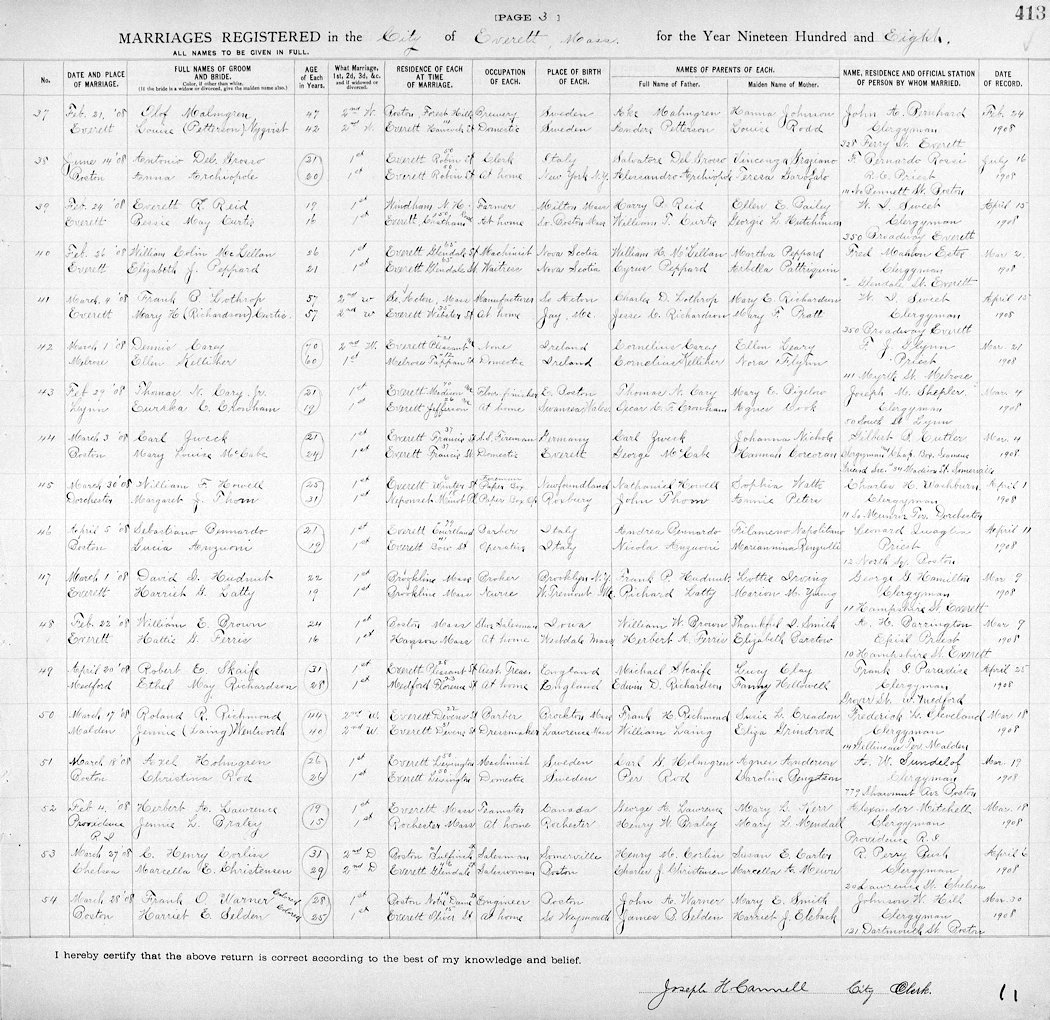 [PAGE 3 ]
413
MARRIAGES REGISTERED in the City of Everett, Mass. for the Year Nineteen Hundred and Eight.
ALL NAMES TO BE GIVEN IN FULL.
No. DATE AND PLACE OF MARRIAGE. FULL NAMES OF GROOM AND BRIDE. Color, if other than white. (If the bride is a widow or divorced, give the maiden name also.) AGE of Each in Years. What Marriage, 1st, 2d, 3d, &c. and if widowed or divorced. RESIDENCE OF EACH AT TIME OF MARRIAGE. OCCUPATION OF EACH. PLACE OF BIRTH OF EACH. NAMES OF PARENTS OF EACH. Full Name of Father. Maiden Name of Mother. NAME, RESIDENCE AND OFFICIAL STATION OF PERSON BY WHOM MARRIED. DATE OF RECORD.
37 Feb. 21, '08 Olof Malmgren 47 2nd W. Boston Forest Hills Brewery Sweden Ake Malmgren Hanna Johnson John A. Feb. 24
Everett Louise (Petterson) Nyqvist 42 2nd W. Everett Hancock St Domestic Sweden Anders Petterson Louise Rodd Clergyman 1908
328 Ferry St. Everett
38 June 14 '08 Antonio Del Grosso 21 1st Everett 50 Robin St Clerk Italy Salvatore Del Grosso Vincenza Graziano Bernardo Rossi July 16
Boston Anna Archiopole 20 1st Everett 50 Robin St At home New York N.Y. Alessandro Archiopole Teresa Garofalo R.C. Priest 1908
14 No Bennett St. Boston
39 Feb. 24 '08 Everett R. Reid 19 1st Windham N.H. Farmer Milton Mass Harry P. Reid Ellen E. Bailey W. I. Sweet April 15
Everett Bessie May Curtis 16 1st Everett Chatham Road At home So. Boston Mass William T. Curtis Georgie L. Hutchinson Clergyman 1908
350 Broadway Everett
40 Feb. 26 '08 William Colin McLellan 26 1st Everett 65 Glendale St Machinist Nova Scotia William H. McLellan Martha Peppard Fred Mar. 21
Everett Elizabeth J. Peppard 21 1st Everett 65 Glendale St Waitress Nova Scotia Cyrus Peppard Arbella Pattriquin Clergyman 1908
Glendale St. Everett
41 March 4 '08 Frank B. Lothrop 57 2nd W So. Acton, Mass Manufacturer So Acton Charles D. Lothrop Mary E. Richardson W. I. Sweet April 15
Everett Mary H (Richardson) Curtis. 57 2nd W Everett Webster St At home Jay, Me. Jesse C. Richardson Mary F. Pratt Clergyman 1908
350 Broadway Everett
42 March 1 '08 Dennis Carey 70 2nd W. Everett Pleasant St None Ireland Cornelius Carey Ellen Leary F. J. Glynn Mar. 21
Melrose Ellen Kelliher 60 1st Melrose Tappan St Domestic Ireland Cornelius Kelliher Nora Flynn Priest 1908
41 Myrtle St. Melrose
43 Feb 29 '08 Thomas N. Cary Jr. 21 1st Everett Madison Ave E. Boston Thomas N. Cary Mary E. Bigelow Joseph M. Shepler. Mar. 4
Lynn Eureka C. Cronham 19 1st Everett Jefferson Ave At home Swansea Wales Oscar C. F. Cronham Agnes Cook Clergyman 1908
50 South St Lynn
44 March 3 '08 Carl Zweck 21 1st Everett 37 Francis St S.S. Fireman Germany Carl Zweck Johanna Nichols Gilbert A. Cutler Mar. 4
Boston Mary Louise McCabe 24 1st Everett 37 Francis St Domestic Everett George McCabe Hannah Corcoran Clergyman & Chap. Bos. Seamens 1908
Friend Soc. 34 Madison St. Somerville
45 March 30 '08 William F. Howell 25 1st Everett Winter St Foreman Paper Box Newfoundland Nathaniel Howell Sophia Watts Charles H. Washburn April 1
Dorchester Margaret J. Thom 31 1st Neponset Minot St Paper Box Op. Roxbury John Thom Annie Peters Clergyman 1908
11 So Munroe Ter. Dorchester
46 April 5 '08 Sebastiano Pennardo 21 1st Everett Courtland Barber Italy Andrea Pennardo Filameno Napolitano Leonard Quaglia April 11
Boston Lucia 19 1st Everett Bow St Operative Italy Nicola Mareannina Priest 1908
12 North Sq. Boston
47 March 1 '08 David D. Hudnut 22 1st Brookline Mass Broker Brooklyn N.Y. Frank P. Hudnut Lottie Irving George G. Hamilton Mar 9
Everett Harriet G. Latty 19 1st Brookline Mass Nurse W. Tremont Me. Richard Latty Marion M. Young Clergyman 1908
11 Hampshire St. Everett
48 Feb. 22 '08 William E. Brown 24 1st Boston Mass Salesman Iowa William W. Brown Thankful D. Smith A. H. Barrington Mar 9
Everett Hattie G. Ferris 16 1st Hanson Mass At home Westdale Mass Herbert A. Ferris Elizabeth Barstow Epis'l Priest 1908
10 Hampshire St. Everett
49 April 20 '08 Robert E. Skaife 31 1st Everett 28 Pleasant St Asst. Treas. England Michael Skaife Lucy Clay Frank I. Paradise April 25
Medford Ethel May Richardson 28 1st Medford Florence St At home England Edwin D. Richardson Fanny Hellowell Clergyman 1908
Grover St. W. Medford
50 March 17 '08 Roland R. Richmond 44 2nd W. Everett 22 Devens St Barber Brockton Mass Frank H. Richmond Susie L. Creadon Frederick H. Cleveland Mar 18
Malden Jennie (Laing) Wentworth 40 2nd W. Everett Devens St Dressmaker Lawrence Mass William Laing Eliza Grundrod Clergyman 1908
14 Ter. Malden
51 March 18 '08 Axel Holmgren 26 1st Everett 50 Lexington Machinist Sweden Carl G. Holmgren Agnes Anderson A. W. Sundelof Mar. 19
Boston Christina Rod 26 1st Everett 50 Lexington Domestic Sweden Per Rod Caroline Bengtson Clergyman 1908
777 Shawmut Ave Boston
52 Feb 4, '08 Herbert A. Lawrence 19 1st Everett Mass Teamster Canada George A. Lawrence Mary G. Kerr Alexander Mitchell Mar. 18
Providence Jennie L. Braley 15 1st Rochester Mass At home Rochester Henry W. Braley Mary L. Mendall Clergyman 1908
R.I. Providence R.I.
53 March 27 '08 C. Henry Corliss 31 2nd D Boston Bulfinch St Salesman Somerville Henry M. Corliss Susan E. Carter R. Perry Bush April 6
Chelsea Marcella C. Christensen 29 2nd D Everett Glendale St Saleswoman Boston Charles J. Christensen Marcella A. Meure Clergyman 1908
Lawrence St. Chelsea
54 March 28 '08 Frank O. Warner Colored 28 1st Boston Notre Dame Engineer Boston John A. Warner Mary E. Smith Johnson W. Hill Mar. 30
Boston Harriet E. Selden Colored 25 1st Everett Oliver St At home So Weymouth James B. Selden Harriet J. Clergyman 1908
121 Dartmouth St. Boston
I hereby certify that the above return is correct according to the best of my knowledge and belief.
Joseph H Cannell City Clerk.
11